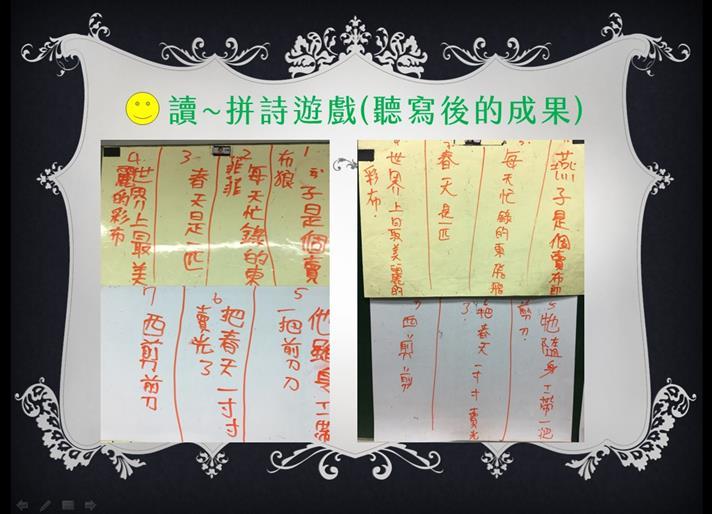 讀~拼詩遊戲(聽寫後的成果)
1 子是個賣
布狼
2 每天忙錄的東
菲菲
3 春天是一匹
4 世界上最美
麗的彩布
5 他雖身工帶
一把剪刀刀
6 把春天一寸寸
賣光了
7 西剪剪刀
燕子是個賣布
每天忙錄的東
春天是一匹
世界上最美麗的
彩布.
5 牠隨身工帶一把
剪刀.
6 把春天一寸寸賣光
了.
7 西剪剪